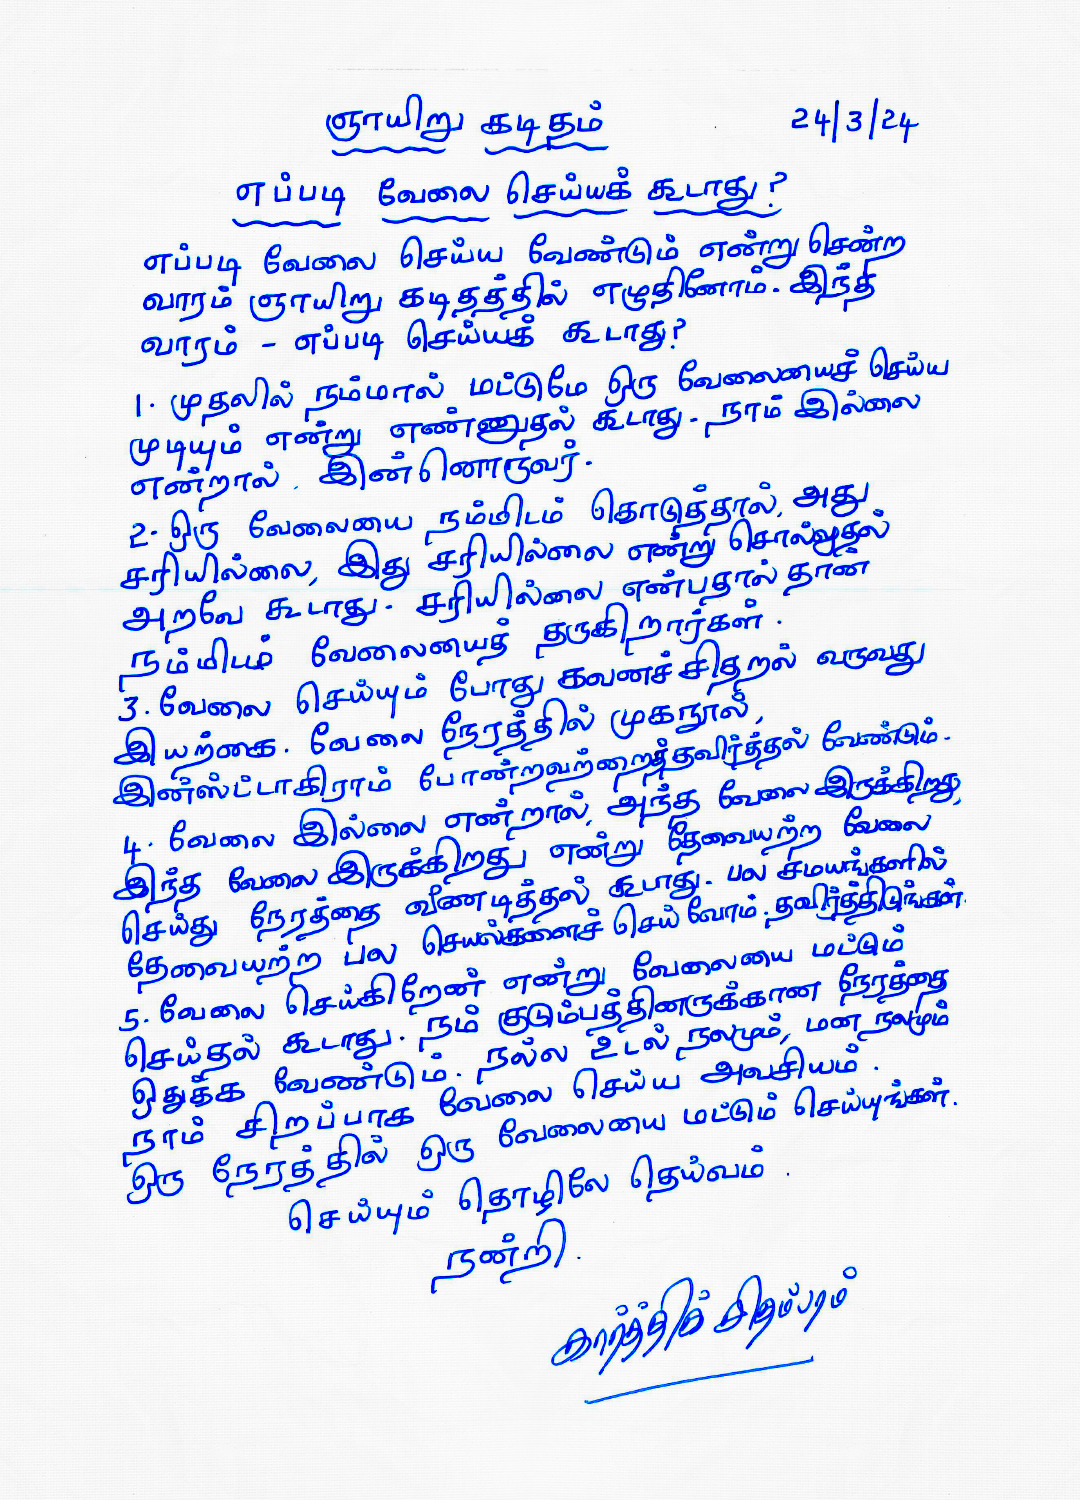 ஞாயிறு கடிதம் 24/3/24
எப்படி வேலை செய்யக் கூடாது?
எப்படி வேலை செய்ய வேண்டும் என்று சென்ற
வாரம் ஞாயிறு கடிதத்தில் எழுதினோம். இந்த
வாரம் - எப்படி செய்யக் கூடாது?
1. முதலில் நம்மால் மட்டுமே ஒரு வேலையைச் செய்ய
முடியும் என்று எண்ணுதல் கூடாது. நாம் இல்லை
என்றால் இன்னொருவர்.
2. ஒரு வேலையை நம்மிடம் கொடுத்தால், அது
சரியில்லை, இது சரியில்லை என்று சொல்வதல்
அறவே கூடாது. சரியில்லை என்பதால் தான்
நம்மிடம் வேலையைத் தருகிறார்கள்.
3. வேலை செய்யும் போது கவனச்சிதறல் வருவது
இயற்கை. வேலை நேரத்தில் முகநூல்,
இன்ஸ்ட்டாகிராம் போன்றவற்றைத்தவிர்த்தல் வேண்டும்.
4. வேலை இல்லை என்றால், அந்த வேலை இருக்கிறது,
இந்த வேலை இருக்கிறது என்று தேவையற்ற வேலை
செய்து நேரத்தை வீணடித்தல் கூடாது. பல சமயங்களில்
தேவையற்ற பல செயல்களைச் செய்வோம். தவிர்த்திடுங்கள்.
5. வேலை செய்கிறேன் என்று வேலையை மட்டும்
செய்தல் கூடாது. நம் குடும்பத்தினருக்கான நேரத்தை
ஒதுக்க வேண்டும். நல்ல உடல் நலமும், மன நலமும்
நாம் சிறப்பாக வேலை செய்ய அவசியம்.
ஒரு நேரத்தில் ஒரு வேலையை மட்டும் செய்யுங்கள்.
செய்யும் தொழிலே தெய்வம்.
நன்றி.
கார்த்திக் சிதம்பரம்